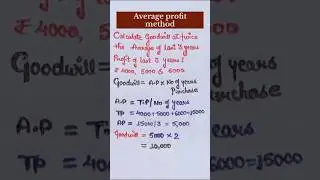 Average profit
method
₹ 4000, 5
Calculate Goodwill at twice
the Average of last 3 years
Profit of last 3 years :
₹ 4000, 5000 & 6000
Goodwill = A.P x No of years
Purchase
A.P = T.P / No of years
TP = 4000 + 5000 + 6000 = 15000
AP = 15000/3 = 5,000
Goodwill = 5000 x 2
= 10,000
A.P
TP = 4
00 = 15000